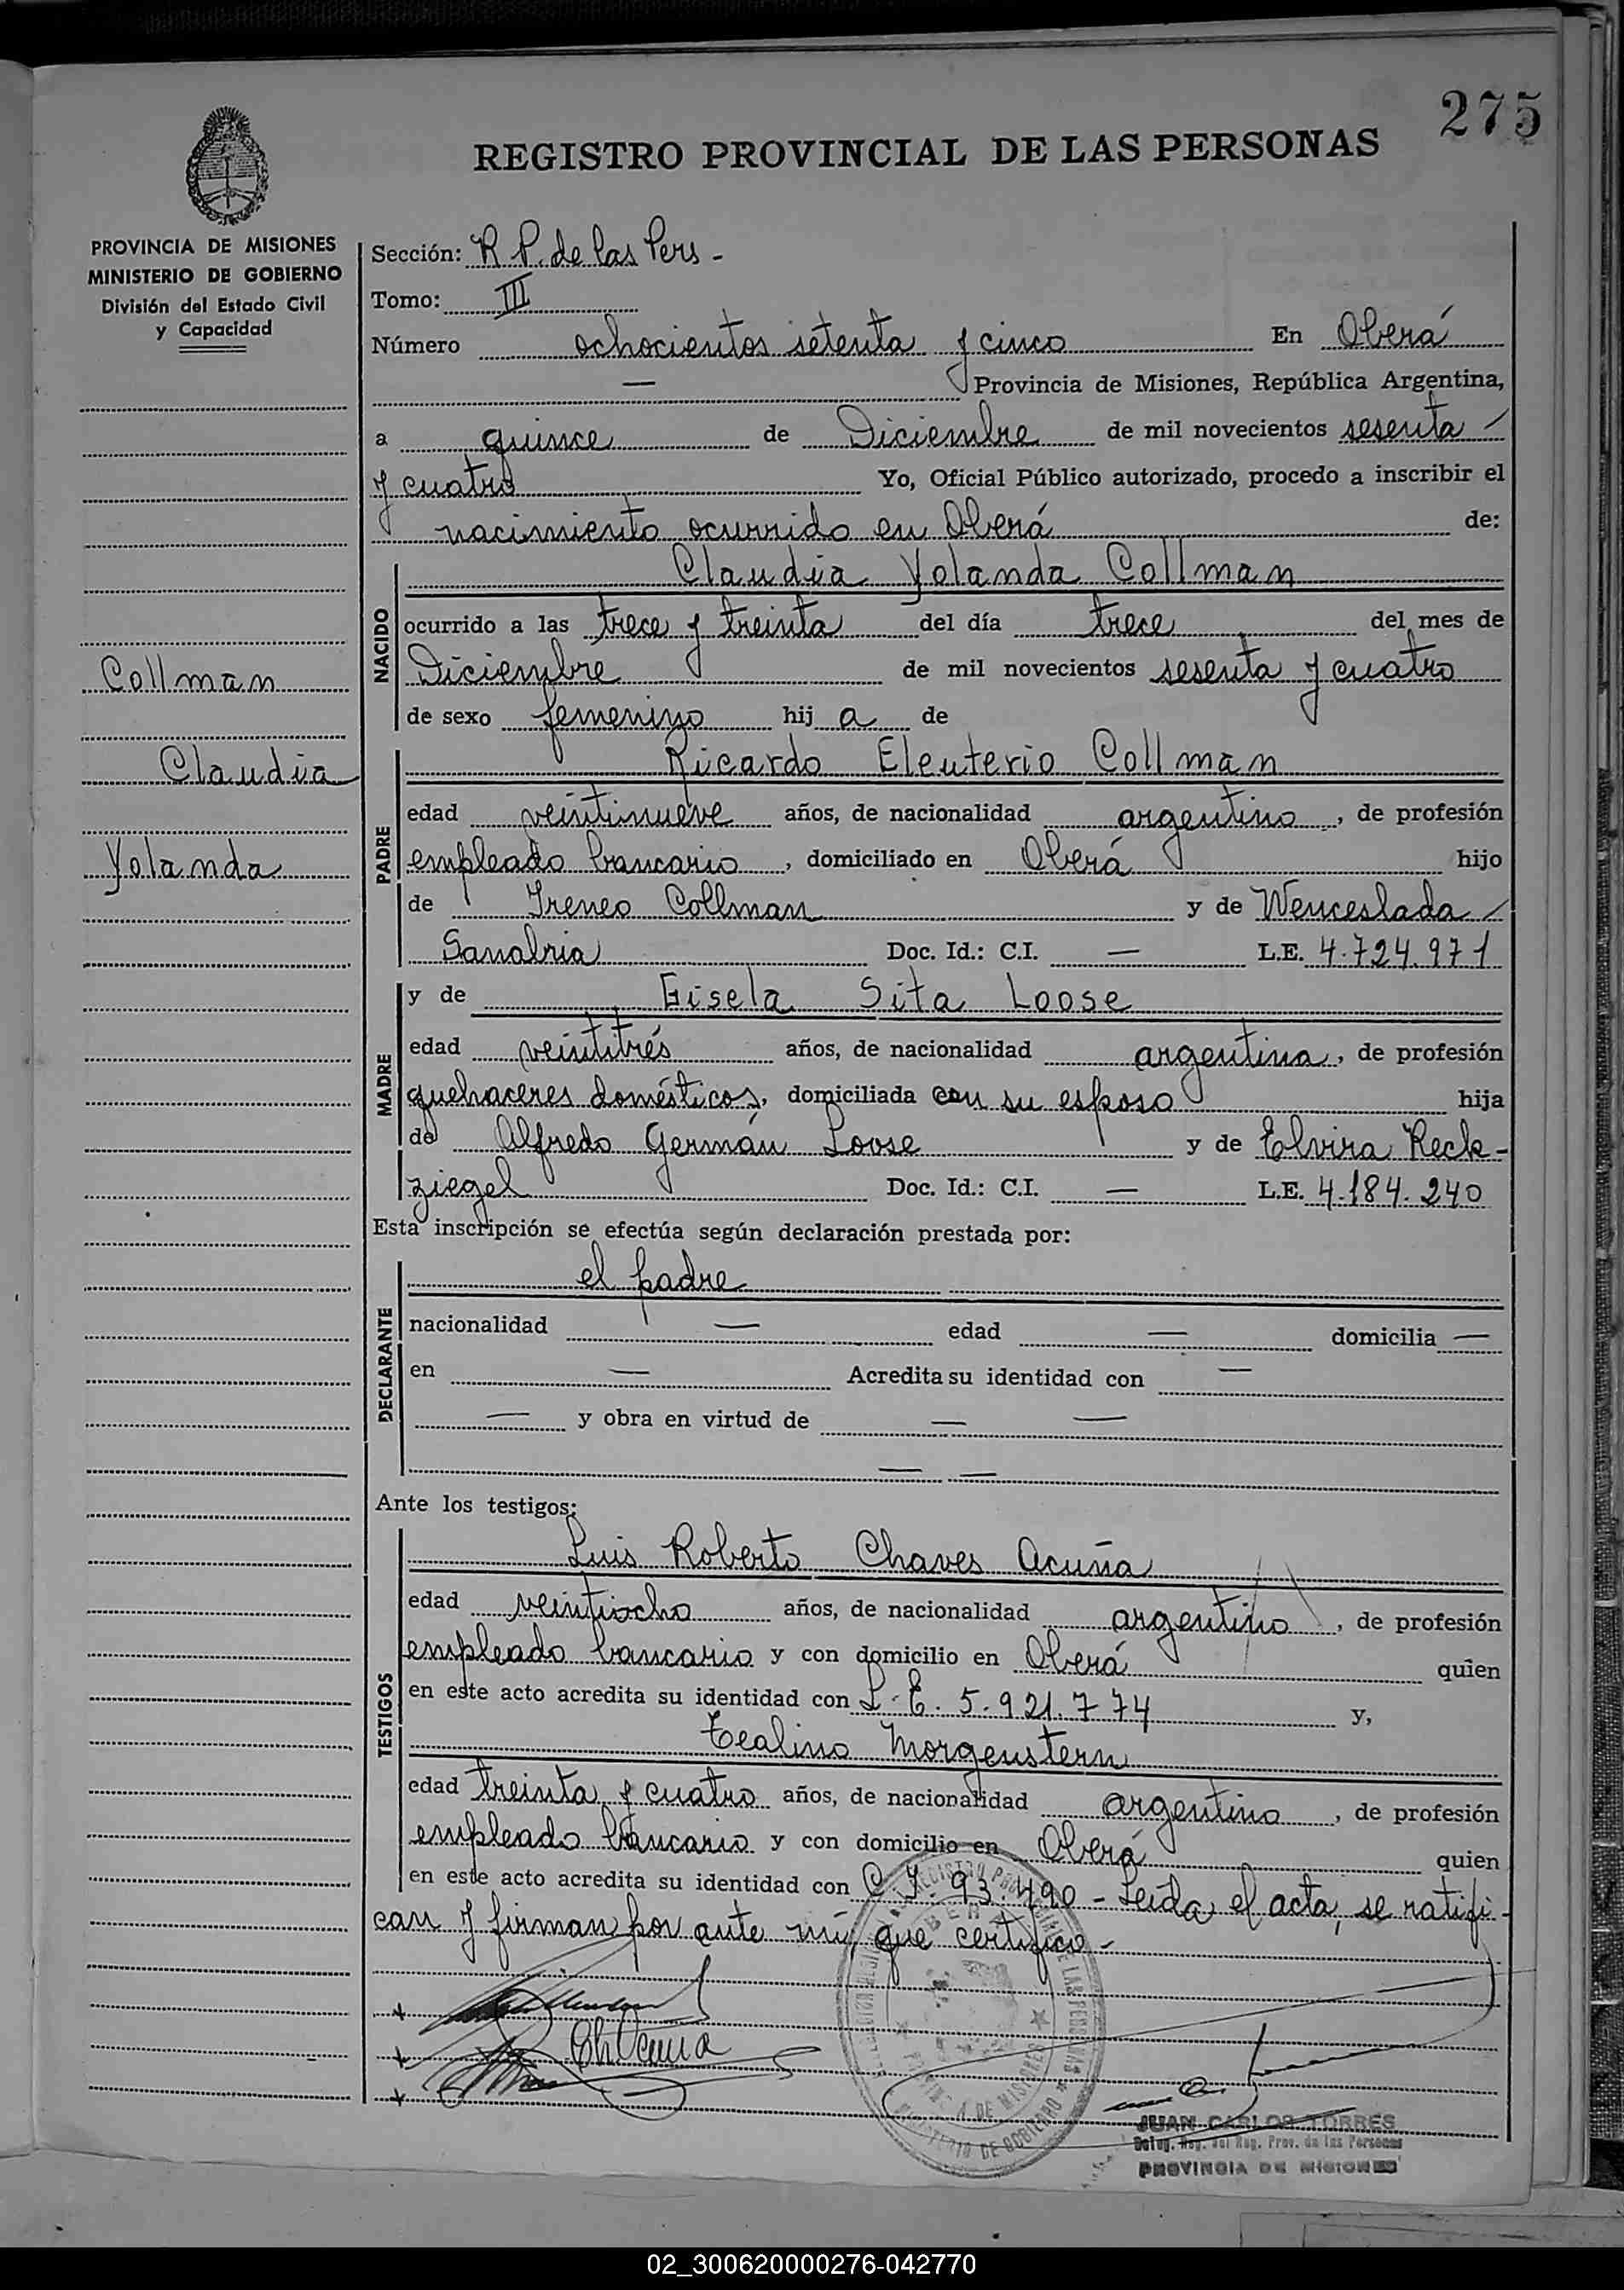 275
REGISTRO PROVINCIAL DE LAS PERSONAS
PROVINCIA DE MISIONES
MINISTERIO DE GOBIERNO
División del Estado Civil
y Capacidad
Collman
Claudia
Yolanda
Sección: R P. de las Pers -
Tomo: III
Número ochocientos setenta y cinco En Oberá
— Provincia de Misiones, República Argentina,
a quince de Diciembre de mil novecientos sesenta
y cuatro Yo, Oficial Público autorizado, procedo a inscribir el
nacimiento ocurrido en Oberá de:
NACIDO
Claudia Yolanda Collman
ocurrido a las trece y treinta del día trece del mes de
Diciembre de mil novecientos sesenta y cuatro
de sexo femenino hij a de
PADRE
Ricardo Eleuterio Collman
edad veintinueve años, de nacionalidad argentino, de profesión
empleado bancario, domiciliado en Oberá hijo
de Ireneo Collman y de Wenceslada
Sanabria Doc. Id.: C.I. — L.E. 4.724.971
MADRE
y de Gisela Sita Loose
edad veintitrés años, de nacionalidad argentina, de profesión
quehaceres domésticos, domiciliada con su esposo hija
de Alfredo Germán Loose y de Elvira Reck-
ziegel Doc. Id.: C.I. — L.E. 4.184.240
Esta inscripción se efectúa según declaración prestada por:
DECLARANTE
el padre
nacionalidad — edad — domicilia —
en — Acredita su identidad con —
— y obra en virtud de — —
— —
Ante los testigos:
TESTIGOS
Luis Roberto Chaves Acuña
edad veintiocho años, de nacionalidad argentino, de profesión
empleado bancario y con domicilio en Oberá quien
en este acto acredita su identidad con L.E. 5.921.774 y,
Tealino Morgenstern
edad treinta y cuatro años, de nacionalidad argentino, de profesión
empleado bancario y con domicilio en Oberá quien
en este acto acredita su identidad con C.I. 93.490 - Leída el acta, se ratifi-
can y firman por ante mí, que certifico -
JUAN CARLOS TORRES
Deleg. Reg. del Reg. Prov. de las Personas
PROVINCIA DE MISIONES
02_300620000276-042770